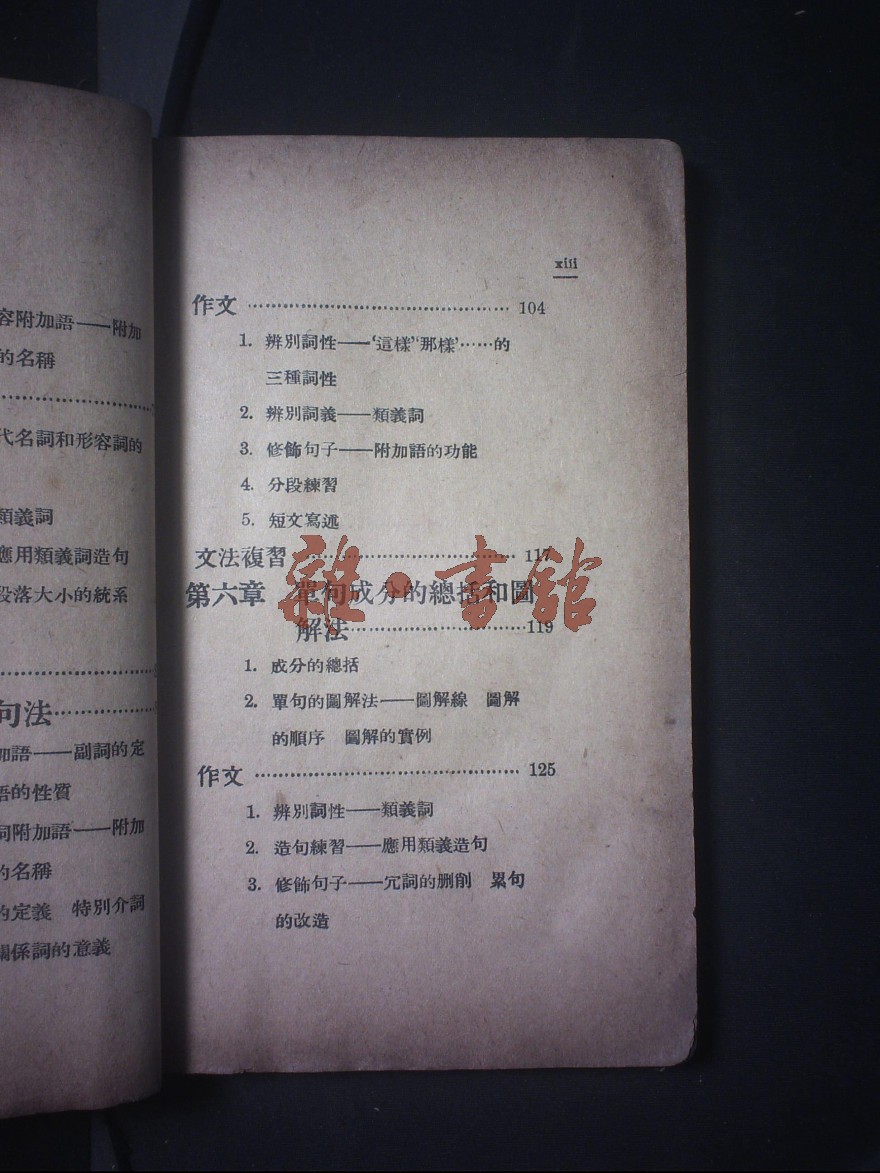 容附加語——附加
的名稱
代名詞和形容詞的
類義詞
應用類義詞造句
段落大小的統系
句法
加語——副詞的定
語的性質
詞附加語——附加
的名稱
的定義　特別介詞
關係詞的意義
xiii
作文 …… 104
1. 辨別詞性——‘這樣’‘那樣’……的
三種詞性
2. 辨別詞義——類義詞
3. 修飾句子——附加語的功能
4. 分段練習
5. 短文寫述
文法複習 …… 117
第六章　單句成分的總括和圖
解法……119
1. 成分的總括
2. 單句的圖解法——圖解線　圖解
的順序　圖解的實例
作文 …… 125
1. 辨別詞性——類義詞
2. 造句練習——應用類義造句
3. 修飾句子——冗詞的刪削　累句
的改造
雜·書館